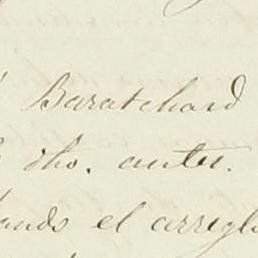 Baratchard
dho. antes.
ando el arreglo